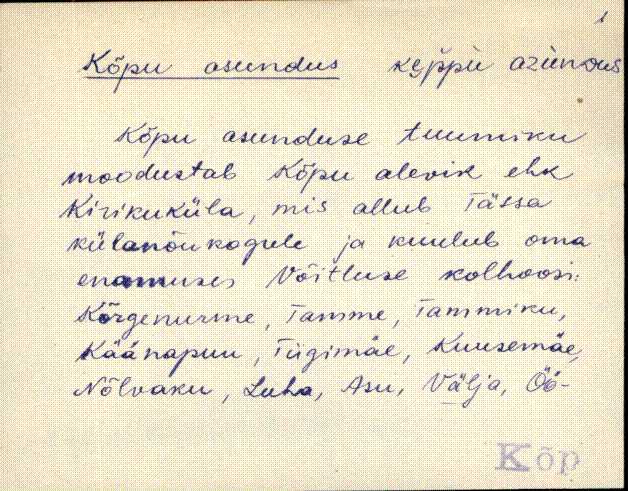 1
Kõpu asundus keppu azundus
Kõpu asunduse tuumiku
moodustab Kõpu alevik ehk
Kirikuküla, mis allub Tässa
külanõukogule ja kuulub oma
enamuses Võitluse kolhoosi:
Kõrgenurme, Tamme, Tammiku,
Käänapuu, Tiigimäe, Kuusemäe,
Nõlvaku, Luha, Asu, Välja, Öö-
Kõp